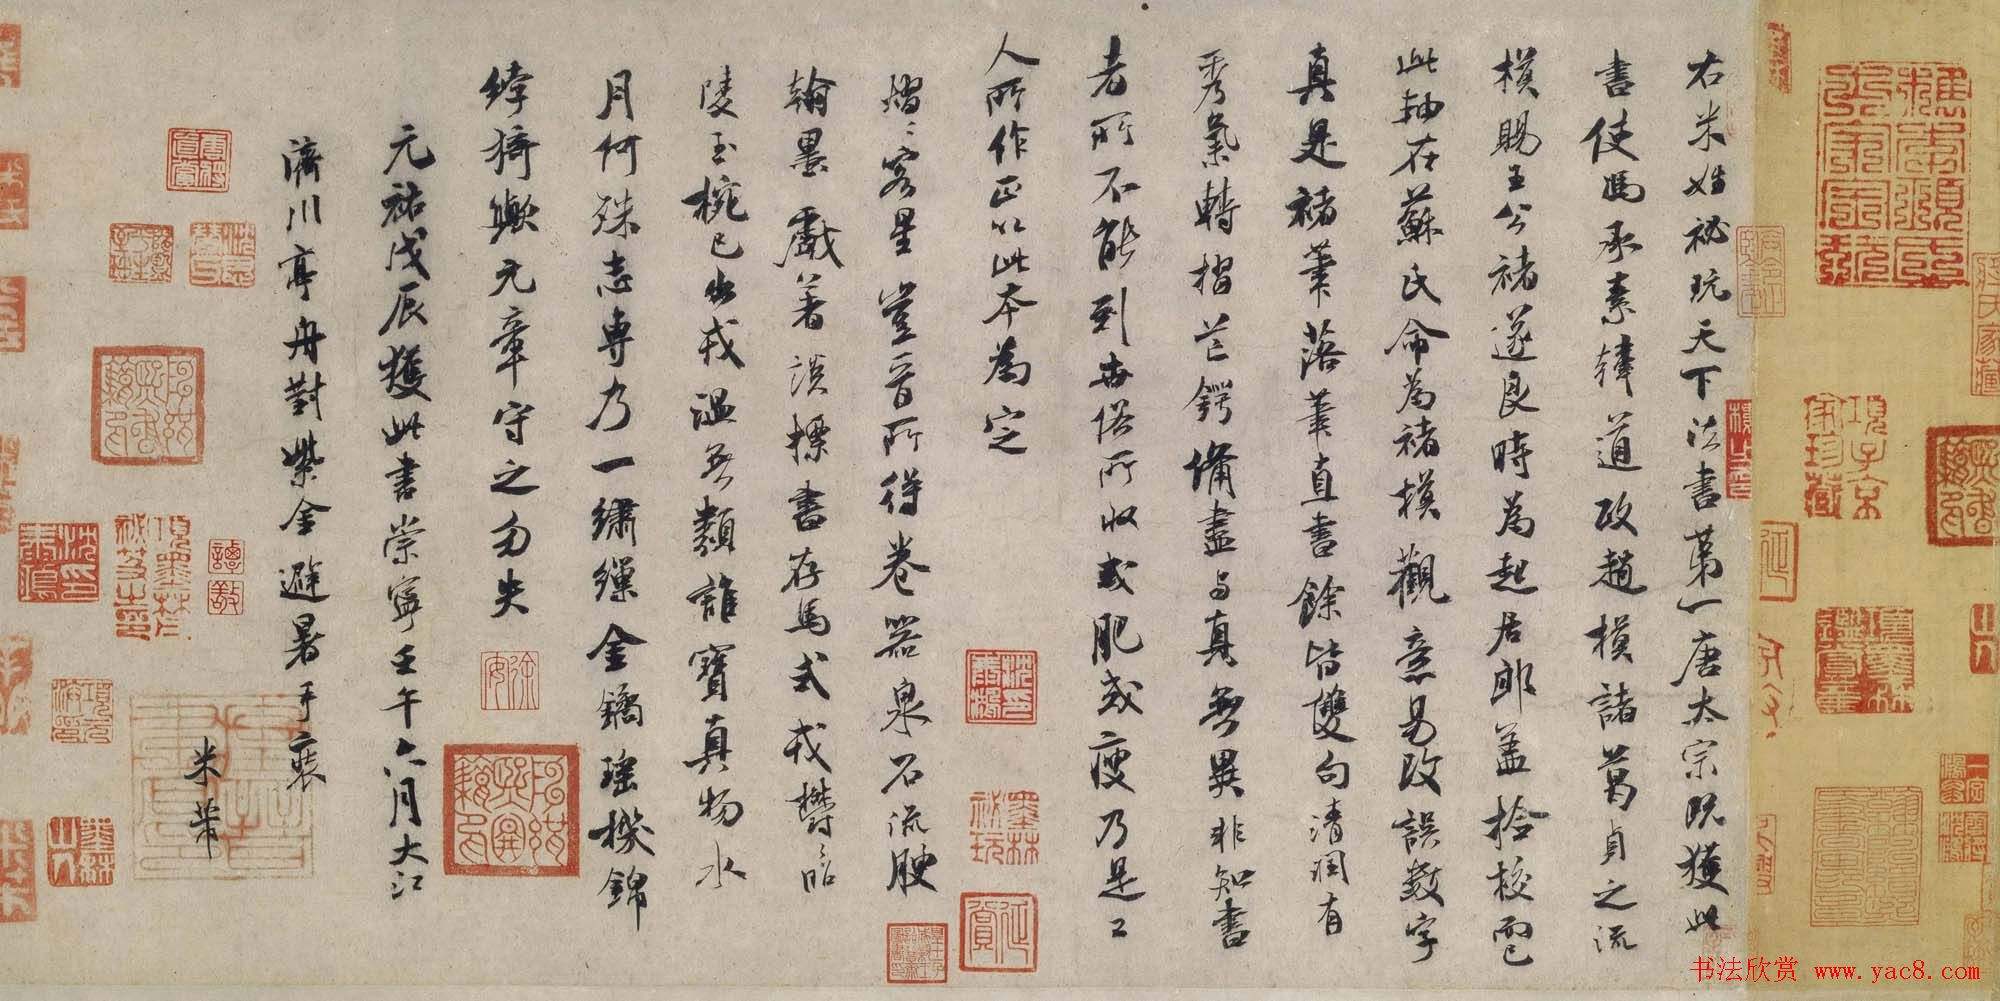 右米姓祕玩天下法書第一唐太宗既獲此
書使馮承素韓道政趙模諸葛貞之流
模賜王公褚遂良時為起居郎蓋撿校而已
此軸在蘇氏命為褚模觀意易改誤數字
真是褚筆落筆直書餘皆雙勾清潤有
秀氣轉摺芒鍔備盡与真無異非知書
者所不能到世俗所收或肥或瘦乃是工
人所作正以此本為定
熠〻客星豈晉所得養器泉石流腴
翰墨戲著談標書存馬式戎鬱〻昭
陵玉椀已出戎温無類誰寶真物水
月何殊志專乃一繡繅金鐍瑤機錦
綷猗歟元章守之勿失
元祐戊辰獲此書崇寧壬午六月大江
濟川亭舟對紫金避暑手裝
米芾
項子京家珍藏
墨林祕玩
墨林山人
書法欣赏 www.yac8.com